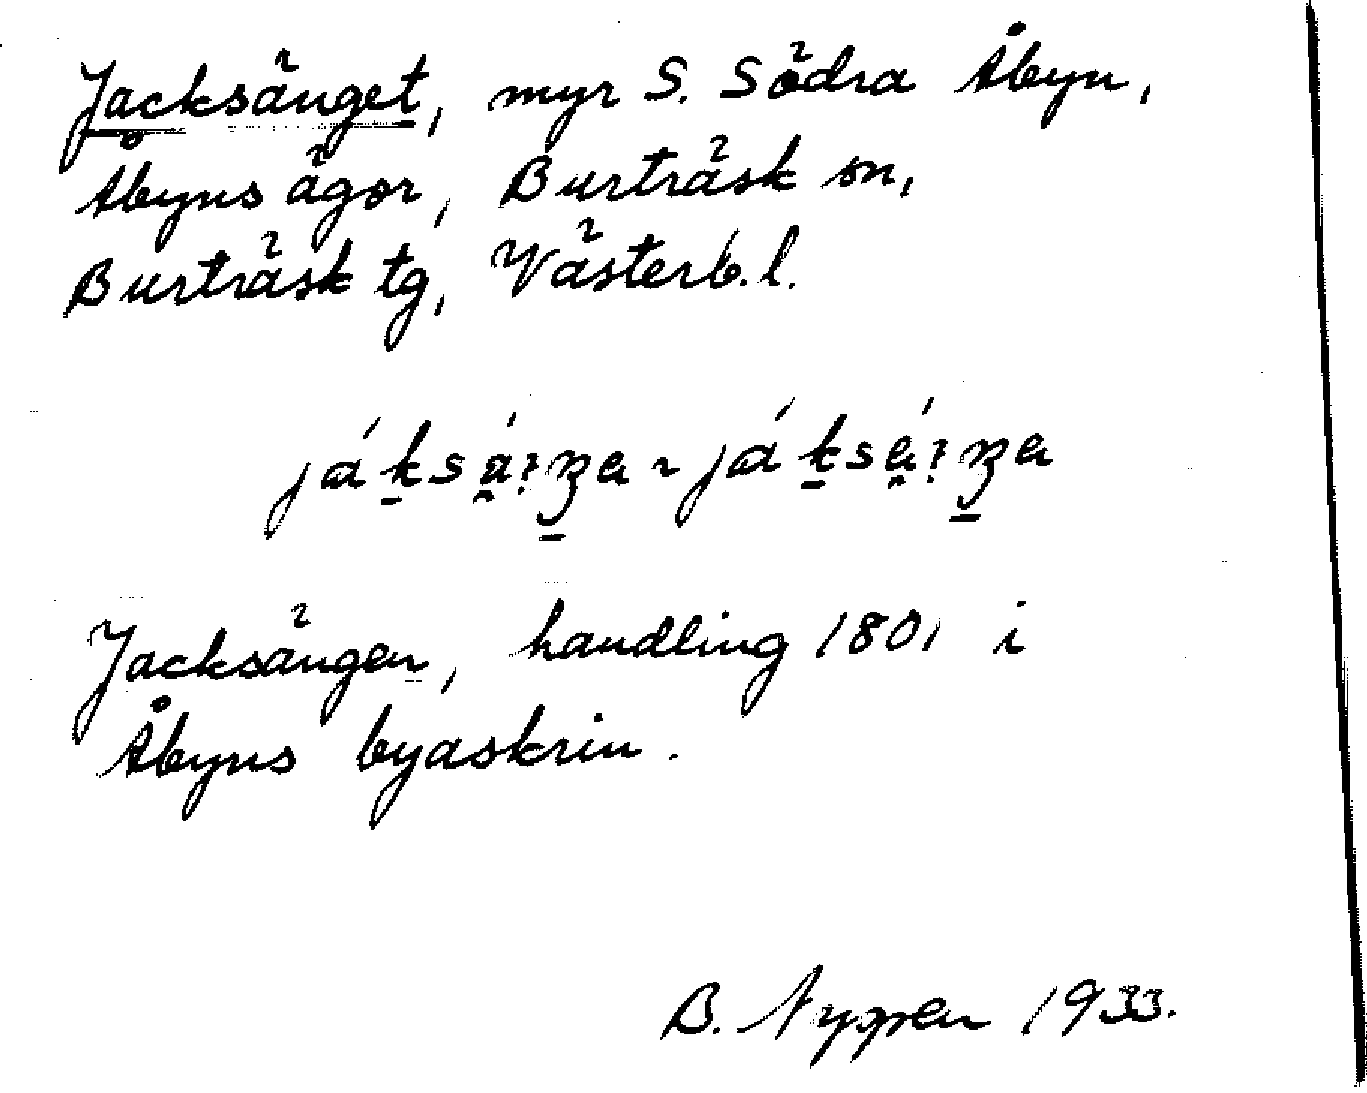 Jacksänget, myr S. Södra Åbyn,
Åbyns ägor, Burträsk sn,
Burträsk tg, Västerb. l.
Jacksängen, handling 1801 i
Åbyns byaskrin.
B. Nygren 1933.